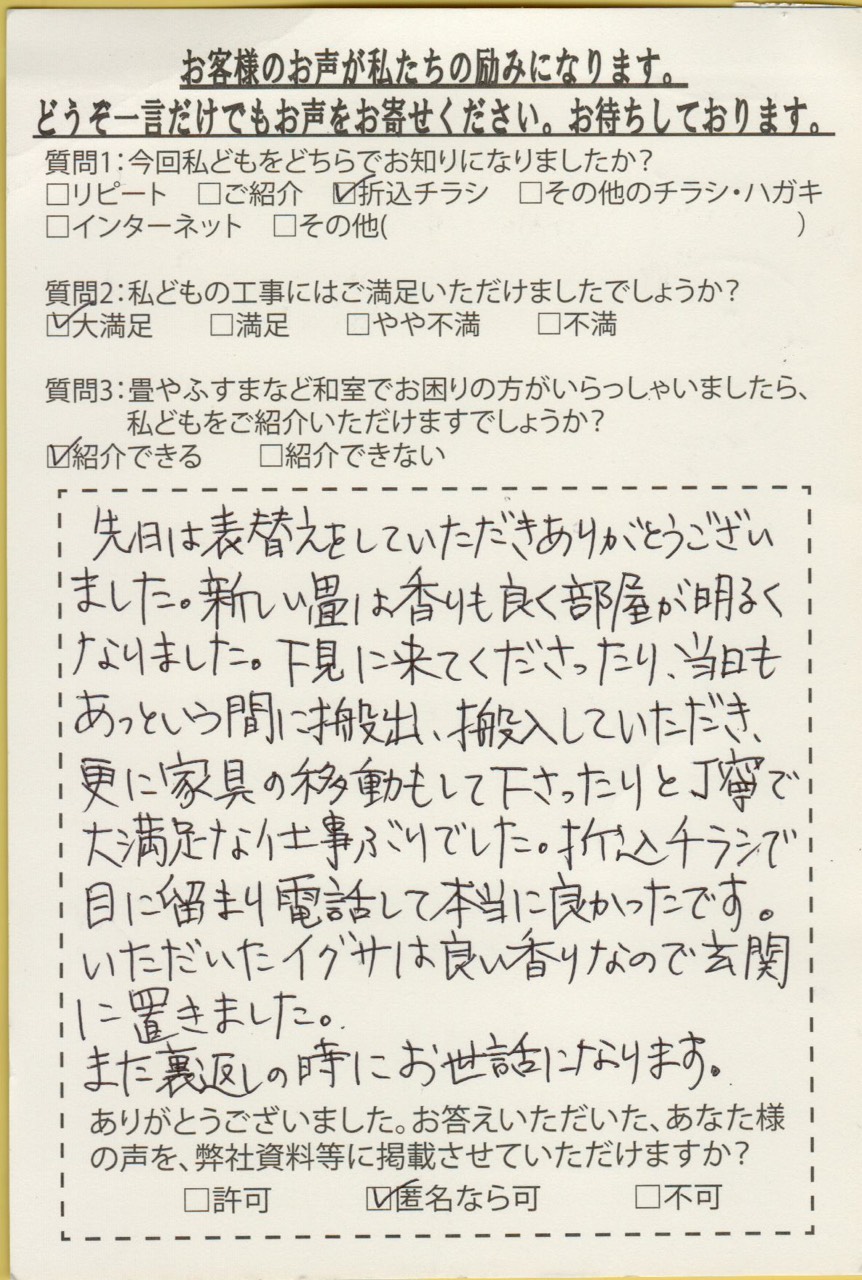 お客様のお声が私たちの励みになります。
どうぞ一言だけでもお声をお寄せください。お待ちしております。
質問1:今回私どもをどちらでお知りになりましたか?
□リピート □ご紹介 ☑折込チラシ □その他のチラシ・ハガキ
□インターネット □その他( )
質問2:私どもの工事にはご満足いただけましたでしょうか?
☑大満足 □満足 □やや不満 □不満
質問3:畳やふすまなど和室でお困りの方がいらっしゃいましたら、
私どもをご紹介いただけますでしょうか?
☑紹介できる □紹介できない
先日は表替えをしていただきありがとうござい
ました。新しい畳は香りも良く部屋が明るく
なりました。下見に来てくださったり、当日も
あっという間に搬出、搬入していただき、
更に家具の移動もして下さったりと丁寧で
大満足な仕事ぶりでした。折込チラシで
目に留まり電話して本当に良かったです。
いただいたイグサは良い香りなので玄関
に置きました。
また裏返しの時にお世話になります。
ありがとうございました。お答えいただいた、あなた様
の声を、弊社資料等に掲載させていただけますか?
□許可 ☑匿名なら可 □不可